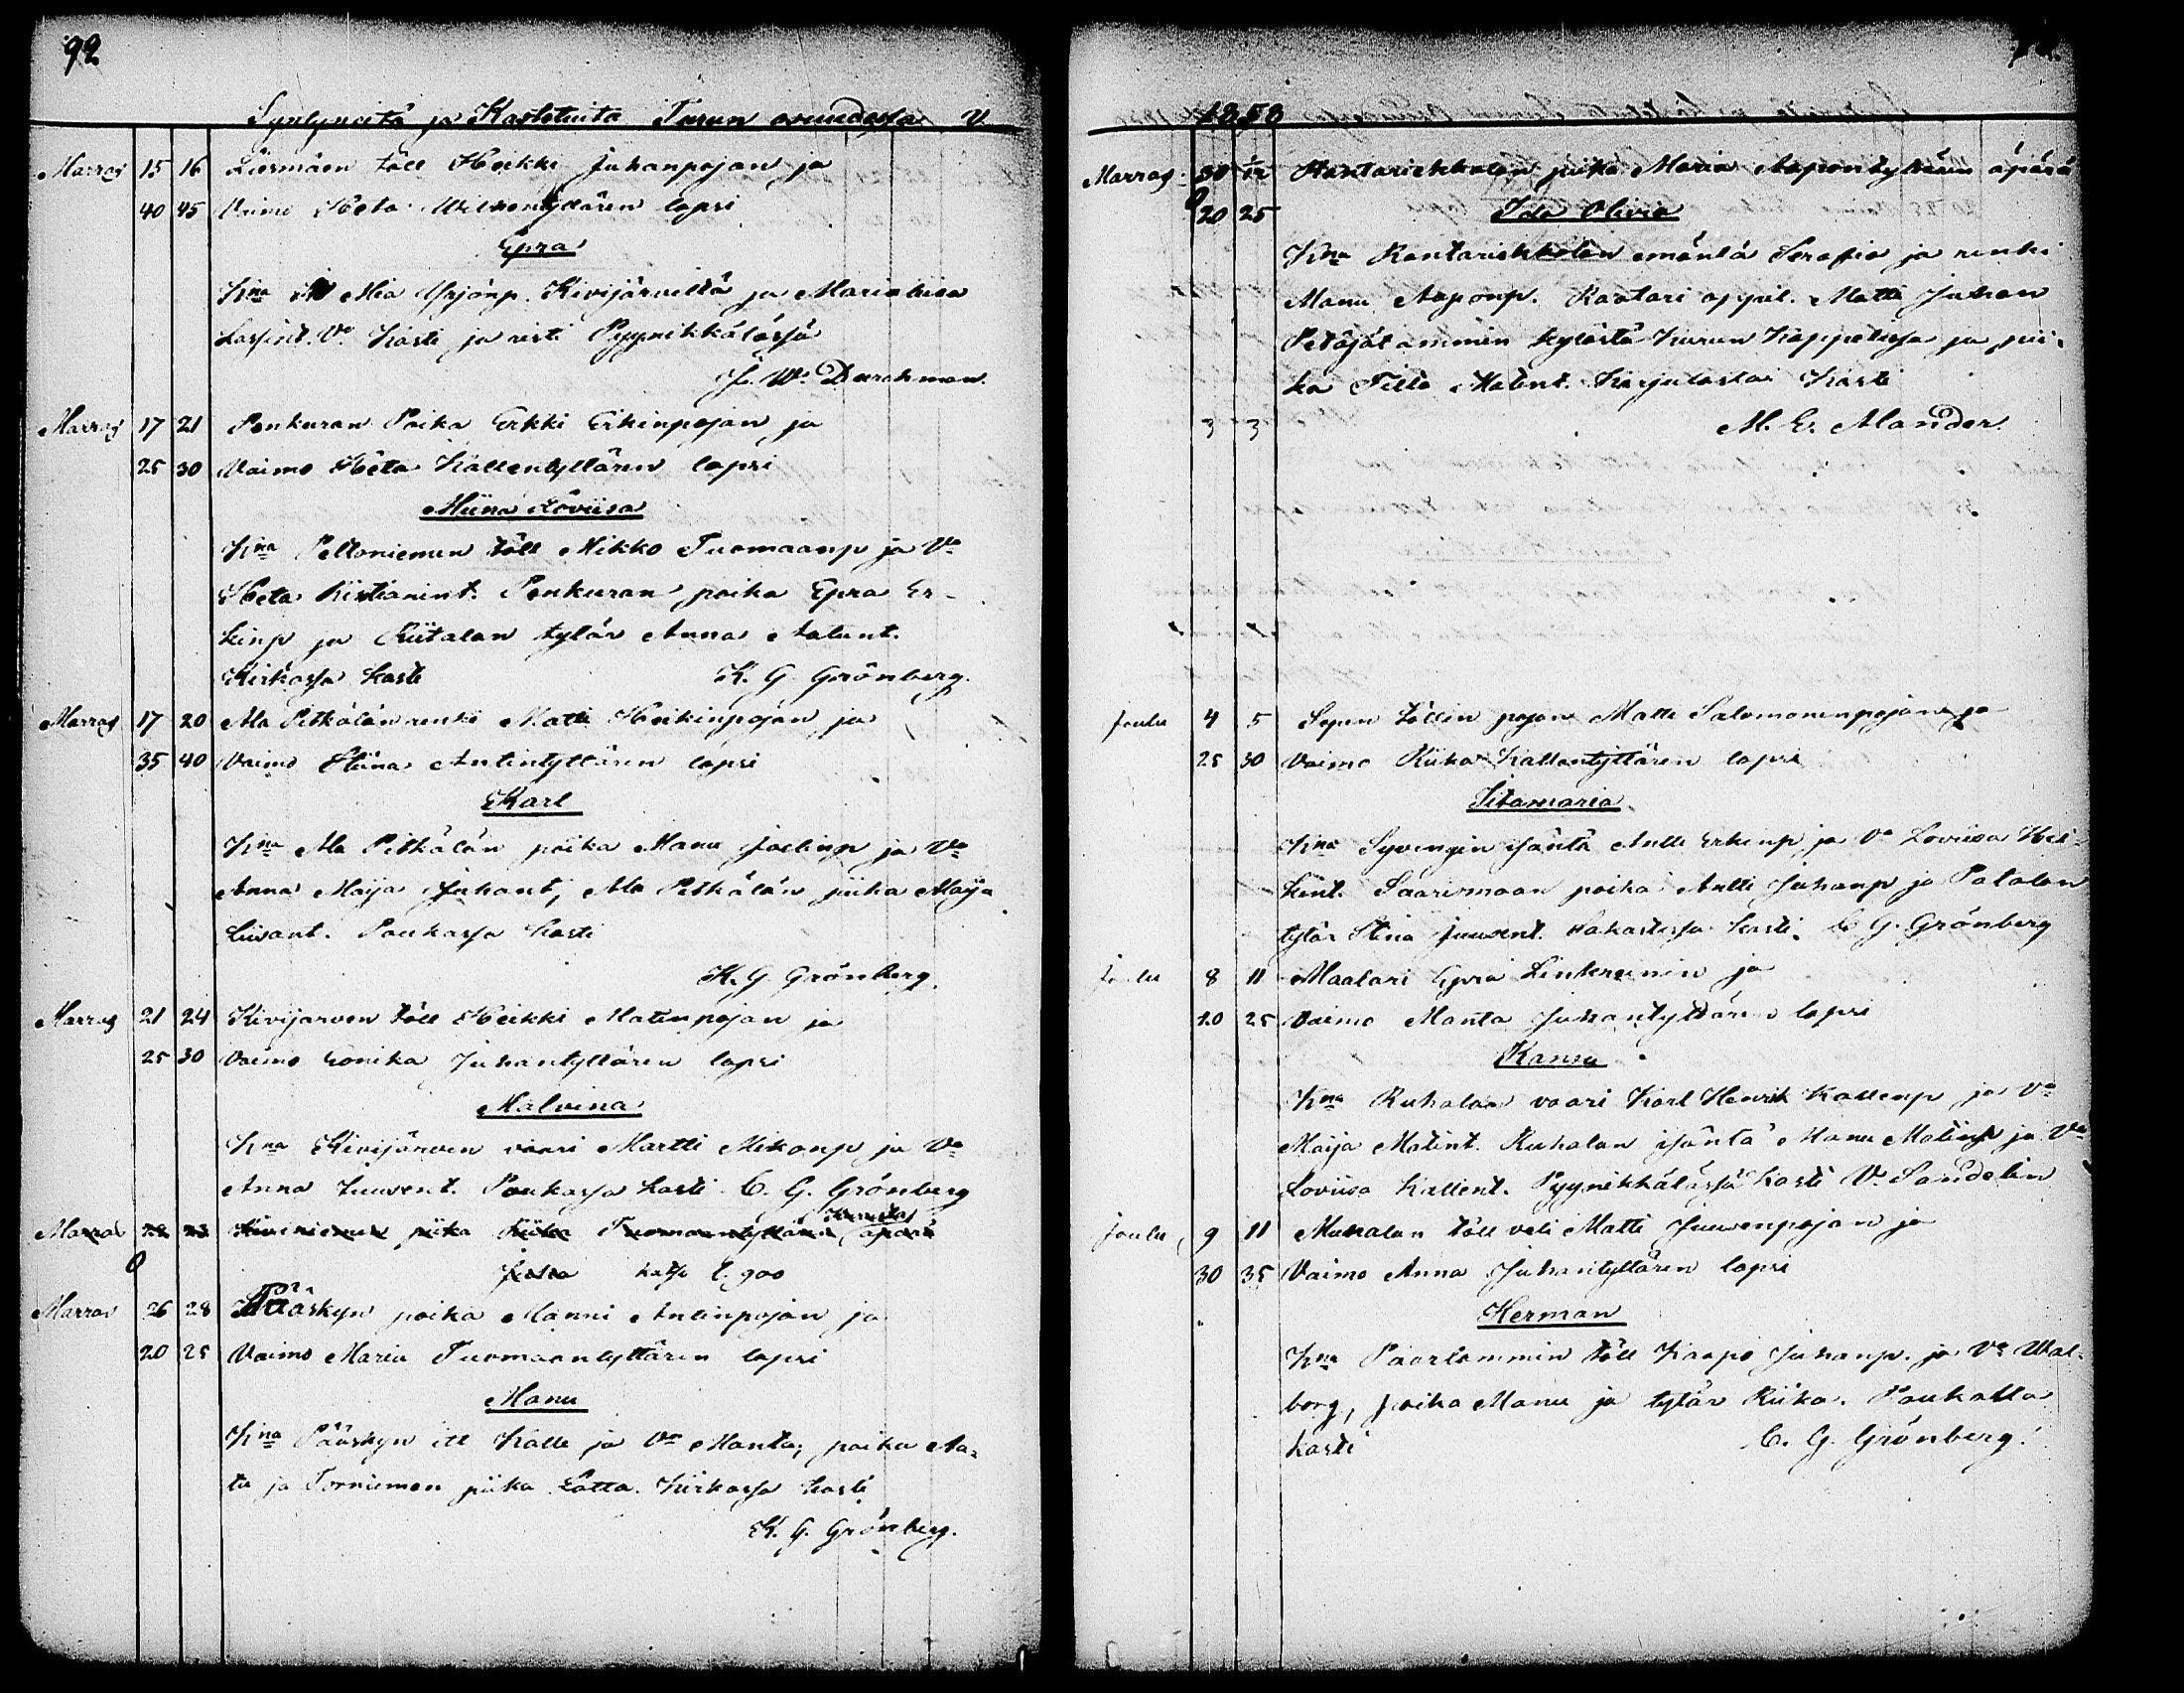 92
Syntyneitä ja Kastetuita Turun osuudessa V.
Marras 15 16 Liesmäen töll Heikki Juhanpojan ja
40 45 Vaimo Heta Mikontyttären lapsi
Epra
Kna Mia Yrjönp. Kivijärveltä ja Marialiisa
Lassint. Va Kasti ja risti Pyynikkälässä
Marras 17 21 Penkuran Poika Erkki Erkinpojan ja
25 30 Vaimo Heta Kallentyttären lapsi
Miina Loviisa
Kna Peltoniemen töll Mikko Tuomaanp ja Va
Heta Kristianint. Penkuran poika Epra Er-
kinp ja Riitalan tytär Anna Aatunt.
Kirkossa kasti K. G. Grönberg.
Marras 17 20 Ala Pitkälän renki Matti Heikinpojan ja
35 40 Vaimo Stiina Antintyttären lapsi
Karl
Kna Ala Pitkälän poika Manu Joelinp ja Va
Anna Maija Juhant, Ala Pitkälän piika Maija
Liisant. Poukassa kasti
K. G. Grönberg.
Marras 21 24 Kivijärven töll Heikki Matinpojan ja
25 30 Vaimo Loviika Juhantyttären lapsi
Malvina
Kna Kivijärven vaari Martti Mikonp ja Va
Anna Juuvent. Poukassa kasti C. G. Grönberg
Marras 22 23 Kiviniemen piika Riika Tuomaantyttären äpärä
katso l. 900
Marras 26 28 Pääskyn poika Manni Antinpojan ja
20 25 Vaimo Maria Tuomaantyttären lapsi
Manu
Kna Pääskyn itt Kalle ja Va Manta, poika Aa-
tu ja Torniemen piika Lotta. Kirkossa kasti
K. G. Grönberg.
1858
Marras 30 Rantariekkolan piika Maria Aapontyttären äpärä
20 25 Ida Olivia
Kna Rantariekkolan emäntä Serafia ja renki
Manu Aaponp. Raatari oppil. Matti Juhan
Petäjälammin kylästä Kurun Kappelissa ja pii-
ka Tilta Matint. Karjulasta Kasti
3 3 M. E. Mander.
Joulu 4 5 Sepen töllin pojan Matti Salomoninpojan ja
25 30 Vaimo Riika Kallentyttären lapsi
Iitamaria
Kna Syvengin isäntä Antti Erkinp ja Va Loviisa Hei-
kint. Saarismaan poika Antti Juhanp ja Patalan
tytär Stina Juuvent. kasti. C. G. Grönberg
Joulu 8 11 Maalari Epra Linkrenin ja
20 25 Vaimo Manta Juhantyttären lapsi
Kansu
Kna Ruhalan vaari Karl Henrik Kallenp ja Va
Maija Matint. Ruhalan isäntä Manu Matinp ja Va
Loviisa Kallent. Pyynikkälässä kasti V. Sandelin
Joulu 9 11 Muhalan töll veli Matti Juuvenpojan ja
30 35 Vaimo Anna Juhantyttären lapsi
Herman
Kna Paarlammin töll Kaapo Juhanp. ja Va Wal-
borg, poika Manu ja tytär Riika. Poukalla
kasti C. G. Grönberg.